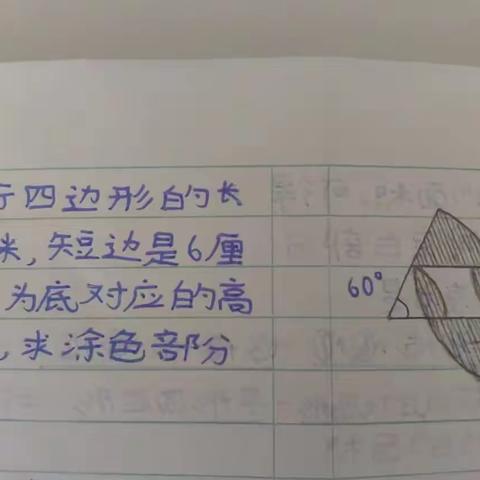 行四边形的长
米,短边是6厘
为底对应的高
,求涂色部分
60°